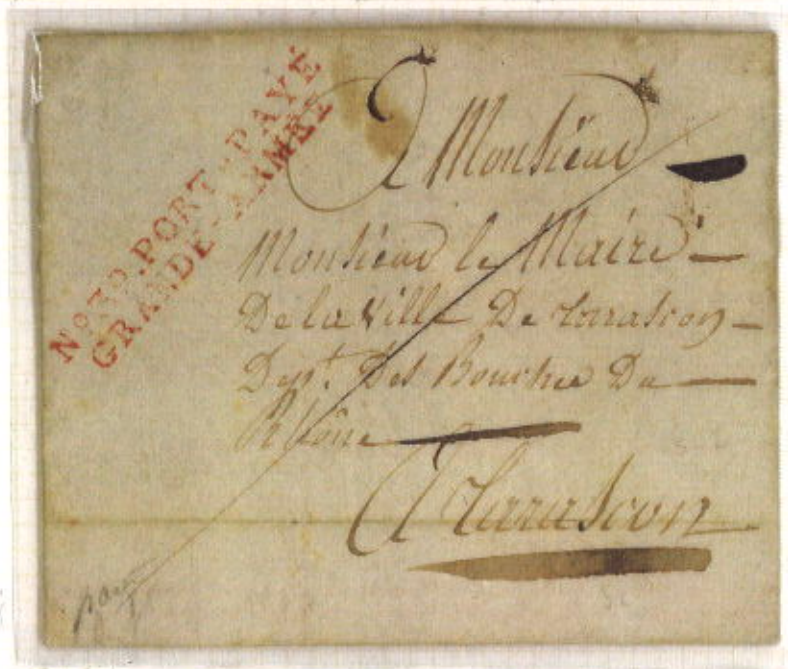 No 39. PORT-PAYÉ
GRANDE-ARMÉE
A Monsieur
Monsieur le Maire
De la ville De tarascon
Dept. Des Bouches Du
Rhône
A tarascon